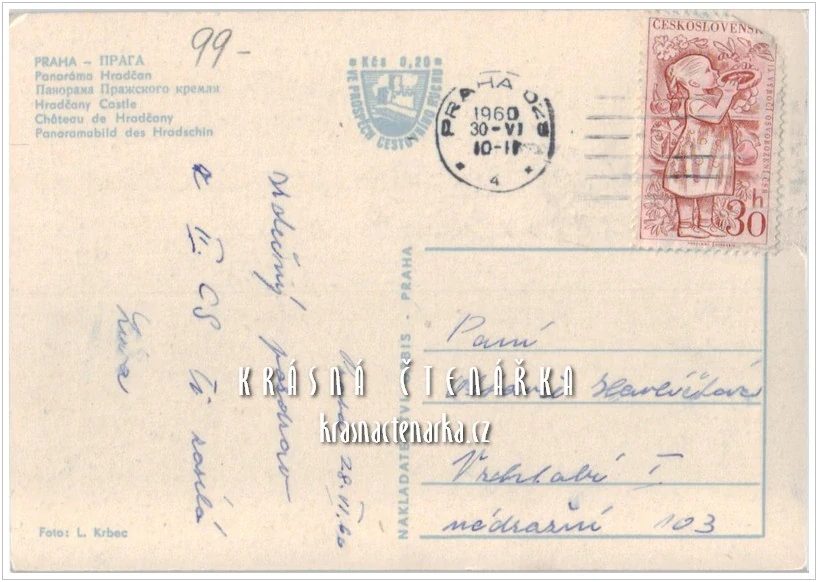 99-
PRAHA – ПРАГА
Panoráma Hradčan
Панорама Пражского кремля
Hradčany Castle
Château de Hradčany
Panoramabild des Hradschin
Kčs 0,20
VE PROSPĚCH CESTOVNÍHO RUCHU
PRAHA 025
1960
30-VI
10-11
4
ČESKOSLOVENSK
XV. VÝROČÍ OSVOBOZENÍ ČSR
30h
28.VI.60
Srdečný pozdrav
z II. CS Ti zasílá
NAKLADATELSTVÍ ORBIS - PRAHA
Paní
Vrchlabí I
nádražní 103
KRÁSNÁ ČTENÁŘKA
krasnactenarka.cz
Foto: L. Krbec